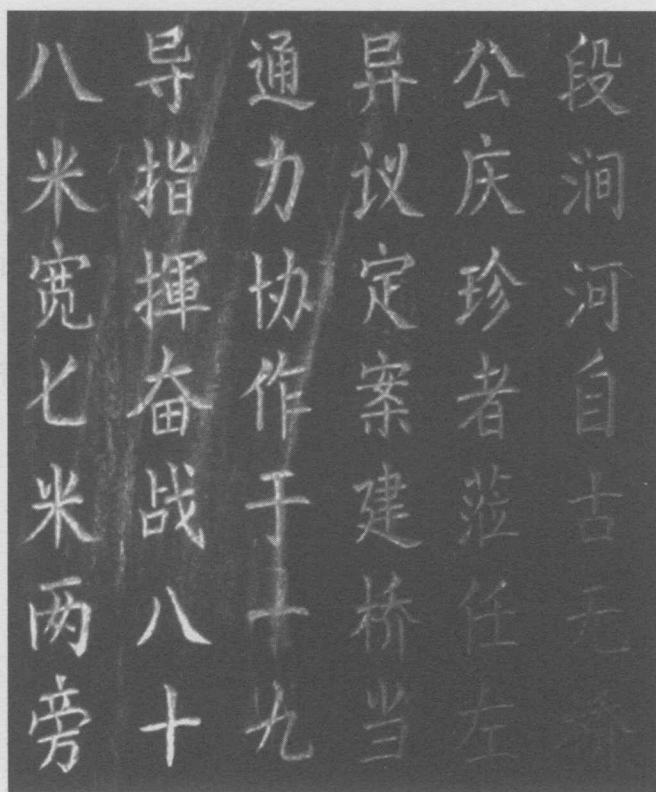 段涧河自古无桥
公庆珍者莅任左
异议定案建桥当
通力协作于十九
导指揮奋战八十
八米宽七米两旁